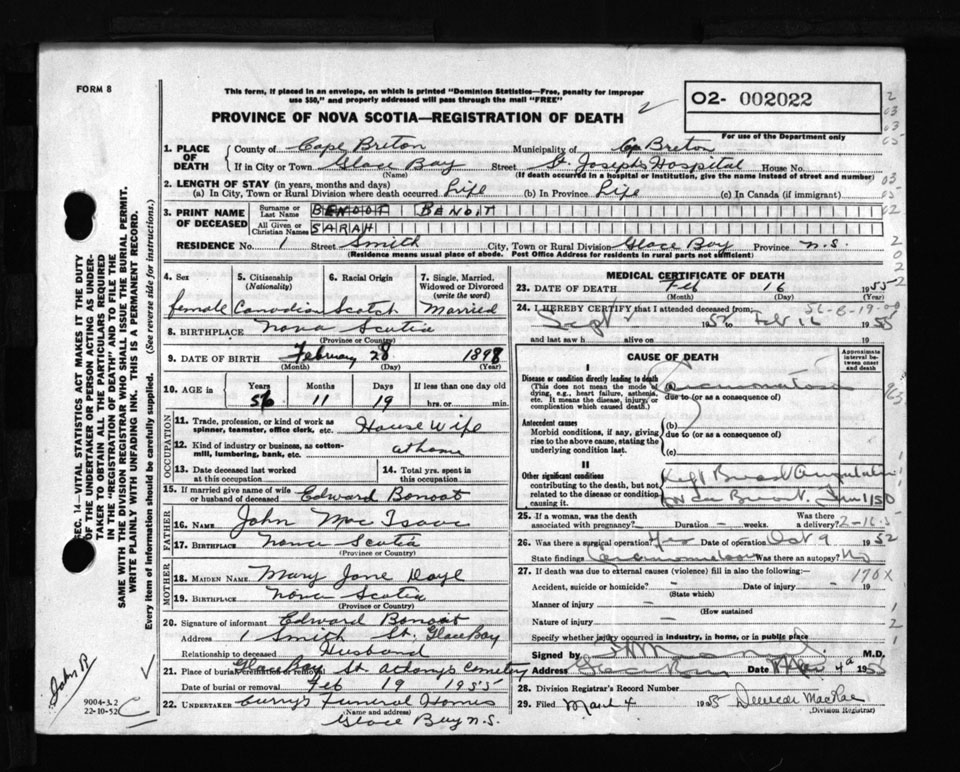 FORM 8
This form, if placed in an envelope, on which is printed "Dominion Statistics—Free, penalty for improper
use $50," and properly addressed will pass through the mail "FREE"
O2- 002022
PROVINCE OF NOVA SCOTIA—REGISTRATION OF DEATH
For use of the Department only
1. PLACE OF DEATH County of Cape Breton Municipality of Breton
If in City or Town Glace Bay Street St. Josephs Hospital House No.
(Name) (If death occurred in a hospital or institution, give the name instead of street and number)
2. LENGTH OF STAY (in years, months and days)
(a) In City, Town or Rural Division where death occurred Life (b) In Province Life (c) In Canada (if immigrant)
3. PRINT NAME OF DECEASED Surname or Last Name BENOIT
All Given or Christian Names SARAH
RESIDENCE No. 1 Street Smith City, Town or Rural Division Glace Bay Province N.S.
(Residence means usual place of abode. Post Office Address for residents in rural parts not sufficient)
4. Sex female
5. Citizenship (Nationality) Canadian
6. Racial Origin Scotch
7. Single, Married, Widowed or Divorced (write the word) Married
8. BIRTHPLACE Nova Scotia
(Province or Country)
9. DATE OF BIRTH February 28 1898
(Month) (Day) (Year)
10. AGE in Years Months Days If less than one day old
56 11 19 hrs. or min.
11. Trade, profession, or kind of work as spinner, teamster, office clerk, etc. House Wife
12. Kind of industry or business, as cotton-mill, lumbering, bank, etc. at home
13. Date deceased last worked at this occupation
14. Total yrs. spent in this occupation
15. If married give name of wife or husband of deceased Edward Bonoot
FATHER
16. NAME John Mac Isaac
17. BIRTHPLACE Nova Scotia
(Province or Country)
MOTHER
18. MAIDEN NAME Mary Jane Doyl
19. BIRTHPLACE Nova Scotia
(Province or Country)
20. Signature of informant Edward Bonoot
Address 1 Smith St. Glace Bay
Relationship to deceased Husband
21. Place of burial, cremation or removal Glace Bay St. Cemetery
Date of burial or removal Feb 19 1955
22. UNDERTAKER Curry's Funeral Homes
(Name and address)
Glace Bay N.S.
MEDICAL CERTIFICATE OF DEATH
23. DATE OF DEATH Feb 16 1955
(Month) (Day) (Year)
24. I HEREBY CERTIFY that I attended deceased from;
Sept Feb 16 1955
and last saw h alive on
CAUSE OF DEATH
Approximate interval between onset and death
I
Disease or condition directly leading to death
(This does not mean the mode of dying, e.g., heart failure, asthenia, etc. It means the disease, injury, or complication which caused death.)
due to (or as a consequence of)
Antecedent causes
Morbid conditions, if any, giving rise to the above cause, stating the underlying condition last.
(b)
due to (or as a consequence of)
(c)
II
Other significant conditions
contributing to the death, but not related to the disease or condition causing it.
Left Breast Amputation
25. If a woman, was the death associated with pregnancy? Duration — weeks. Was there a delivery?
26. Was there a surgical operation? Yes Date of operation Oct 9 1952
State findings Was there an autopsy? No
27. If death was due to external causes (violence) fill in also the following:—
170X
Accident, suicide or homicide? — Date of injury — 19
(State which)
Manner of injury —
(How sustained)
Nature of injury —
Specify whether injury occurred in industry, in home, or in public place
Signed by M.D.
Address Glace Bay Date Mar 4th 1955
28. Division Registrar's Record Number
29. Filed March 4 1955 MacRae
(Division Registrar)
SEC. 14—VITAL STATISTICS ACT MAKES IT THE DUTY
OF THE UNDERTAKER OR PERSON ACTING AS UNDER-
TAKER TO OBTAIN ALL THE PARTICULARS REQUIRED
IN THE "REGISTRATION OF DEATH" AND TO FILE THE
SAME WITH THE DIVISION REGISTRAR WHO SHALL ISSUE THE BURIAL PERMIT.
WRITE PLAINLY WITH UNFADING INK. THIS IS A PERMANENT RECORD.
Every item of information should be carefully supplied. (See reverse side for instructions.)
John B
9004-3.2
22-10-52